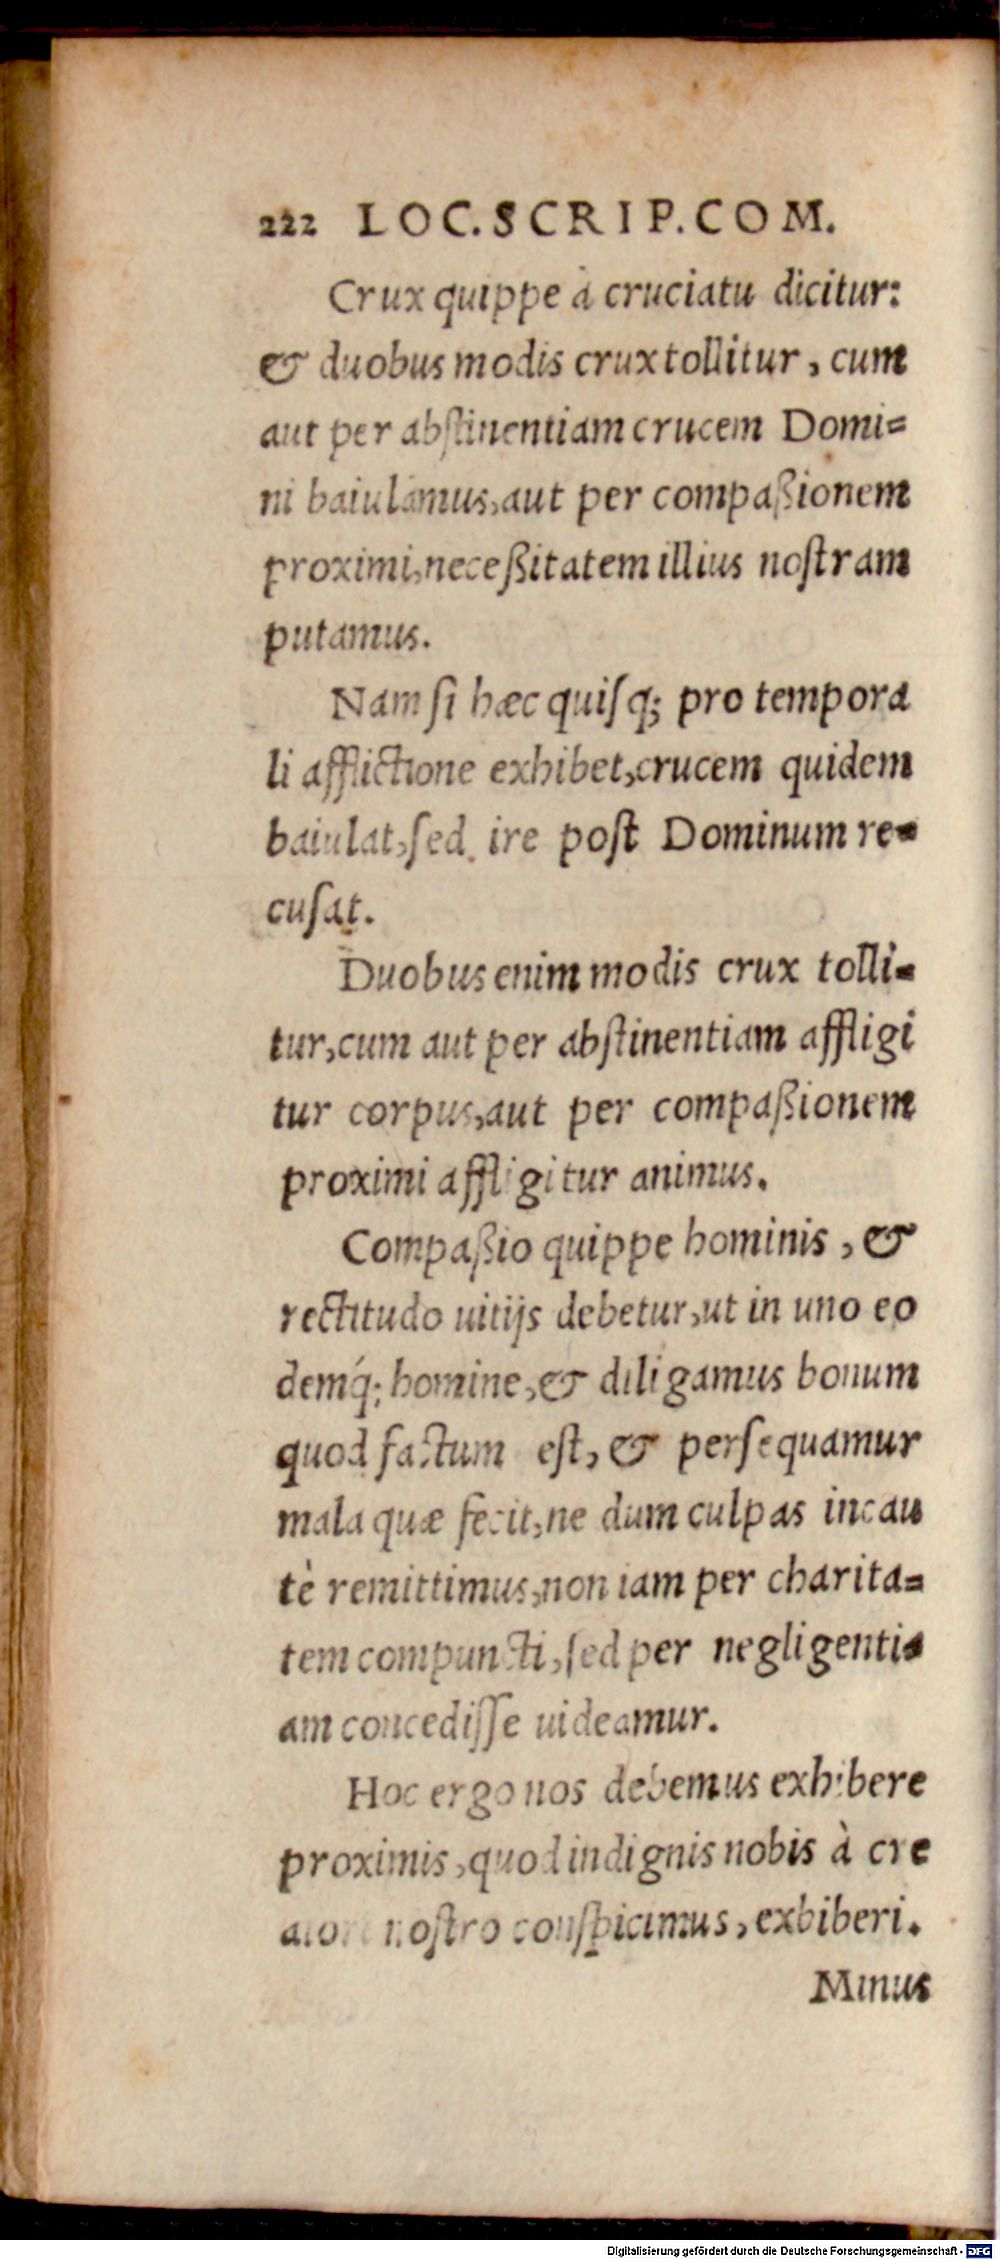 222 LOC. SCRIP. COM.
Crux quippe à cruciatu dicitur:
& duobus modis crux tollitur, cum
aut per abstinentiam crucem Domi=
ni baiulamus, aut per compaßionem
proximi, neceßitatem illius nostram
putamus.
Nam si hæc quisq; pro tempora
li afflictione exhibet, crucem quidem
baiulat, sed ire post Dominum re=
cusat.
Duobus enim modis crux tolli=
tur, cum aut per abstinentiam affligi
tur corpus, aut per compaßionem
proximi affligitur animus.
Compaßio quippe hominis, &
rectitudo uitijs debetur, ut in uno eo
demq́; homine, & diligamus bonum
quod factum est, & persequamur
mala quæ fecit, ne dum culpas incau
tè remittimus, non iam per charita=
tem compuncti, sed per negligenti=
am concedisse uideamur.
Hoc ergo nos debemus exhibere
proximis, quod indignis nobis à cre
atore nostro conspicimus, exhiberi.
Minus
Digitalisierung gefördert durch die Deutsche Forschungsgemeinschaft - DFG